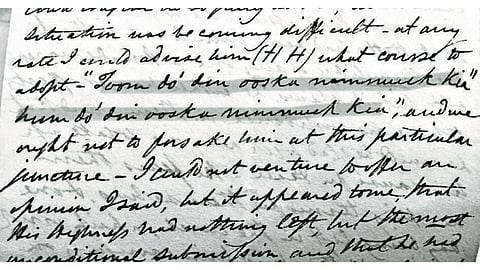 situation was becoming difficult - at any
rate I could advise him (H H) what course to
adopt - "Toom dó din ooska nimmuck kia"
hum dó din ooska nimmuck kia", and we
ought not to forsake him at this particular
juncture - I could not venture to offer an
opinion I said, but it appeared to me, that
His Highness had nothing left, but the most
unconditional submission, and that he had